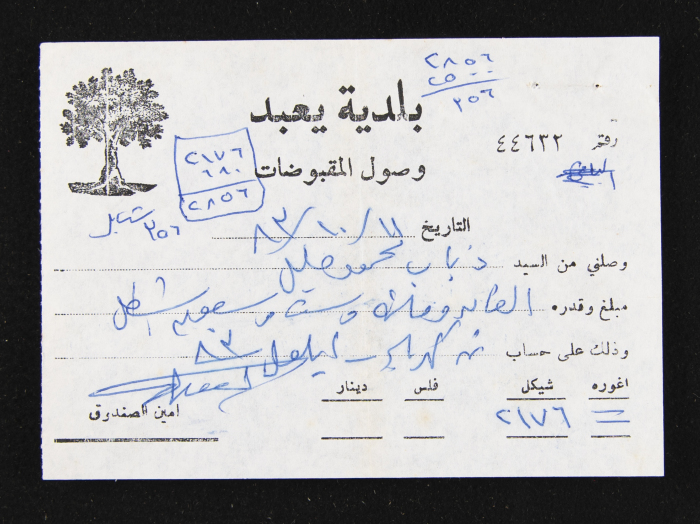 ٢٨٥٦
٢٥٠٠
٣٥٦
بلدية يعبد
رقم ٤٤٦٣٢
وصول المقبوضات
الباقي
٢١٧٦
٦٨٠
٢٨٥٦
٣٥٦ شيكل
التاريخ ١١/١٠/٨٣
وصلني من السيد ذياب محمود خليل
مبلغ وقدره الفان ومائة وستة وسبعين شيكل
وذلك على حساب ثمن كهرباء ايلول ٨٣
اغوره شيكل فلس دينار
= ٢١٧٦
امين الصندوق